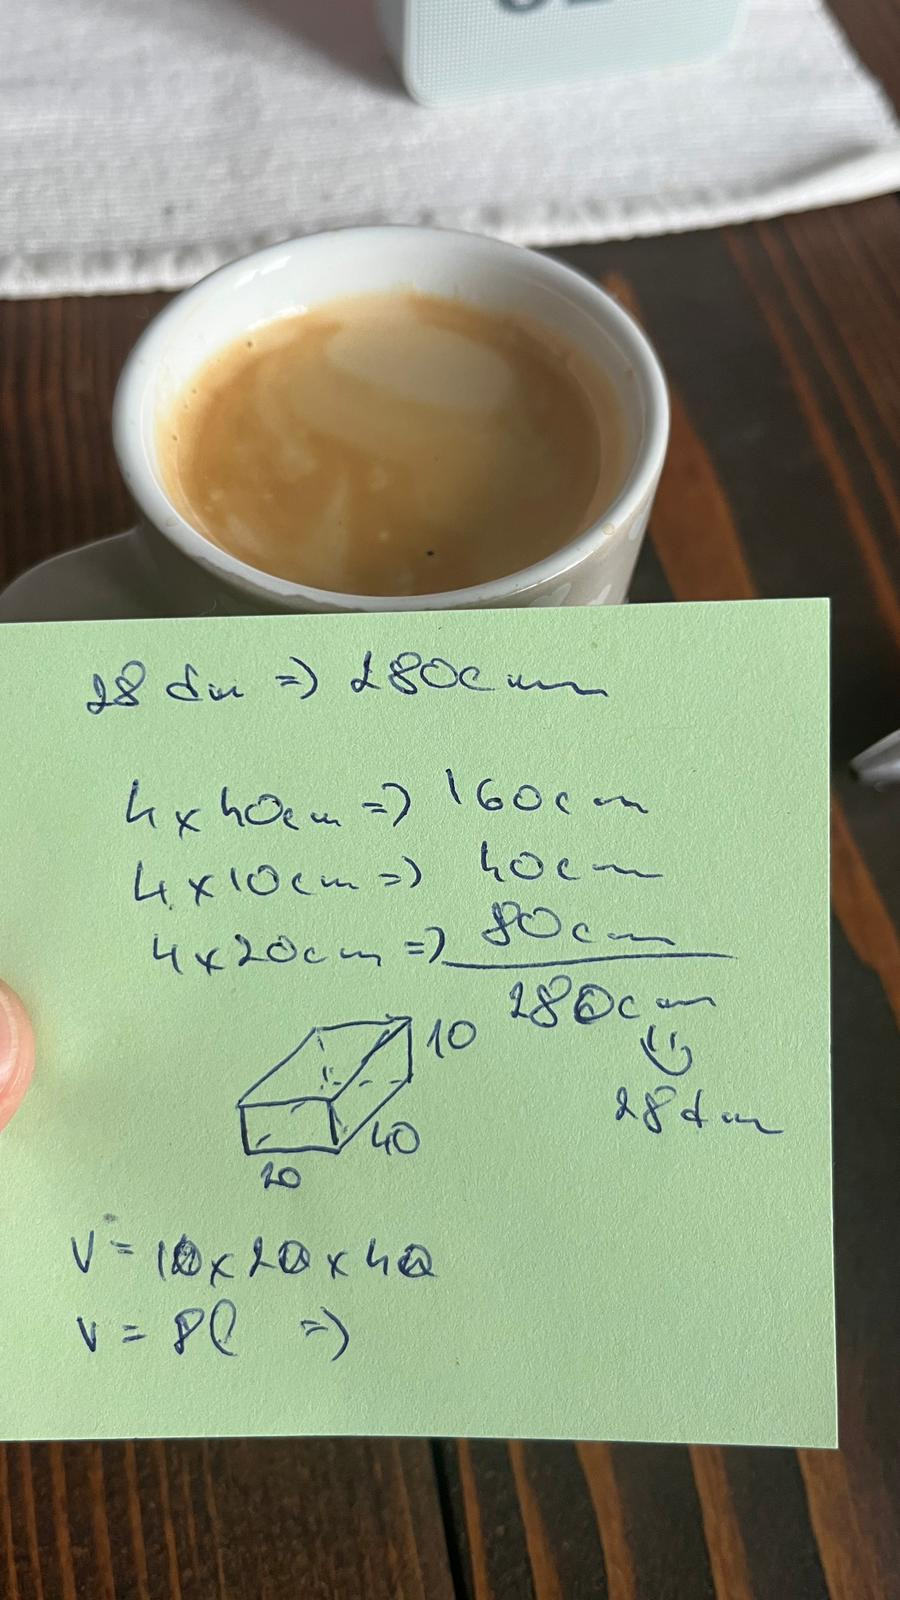 28 dm => 280cm
4 x 40cm => 160cm
4 x 10cm => 40cm
4 x 20cm => 80cm
280cm
10
28dm
40
20
V = 10 x 20 x 40
V = 8l =>